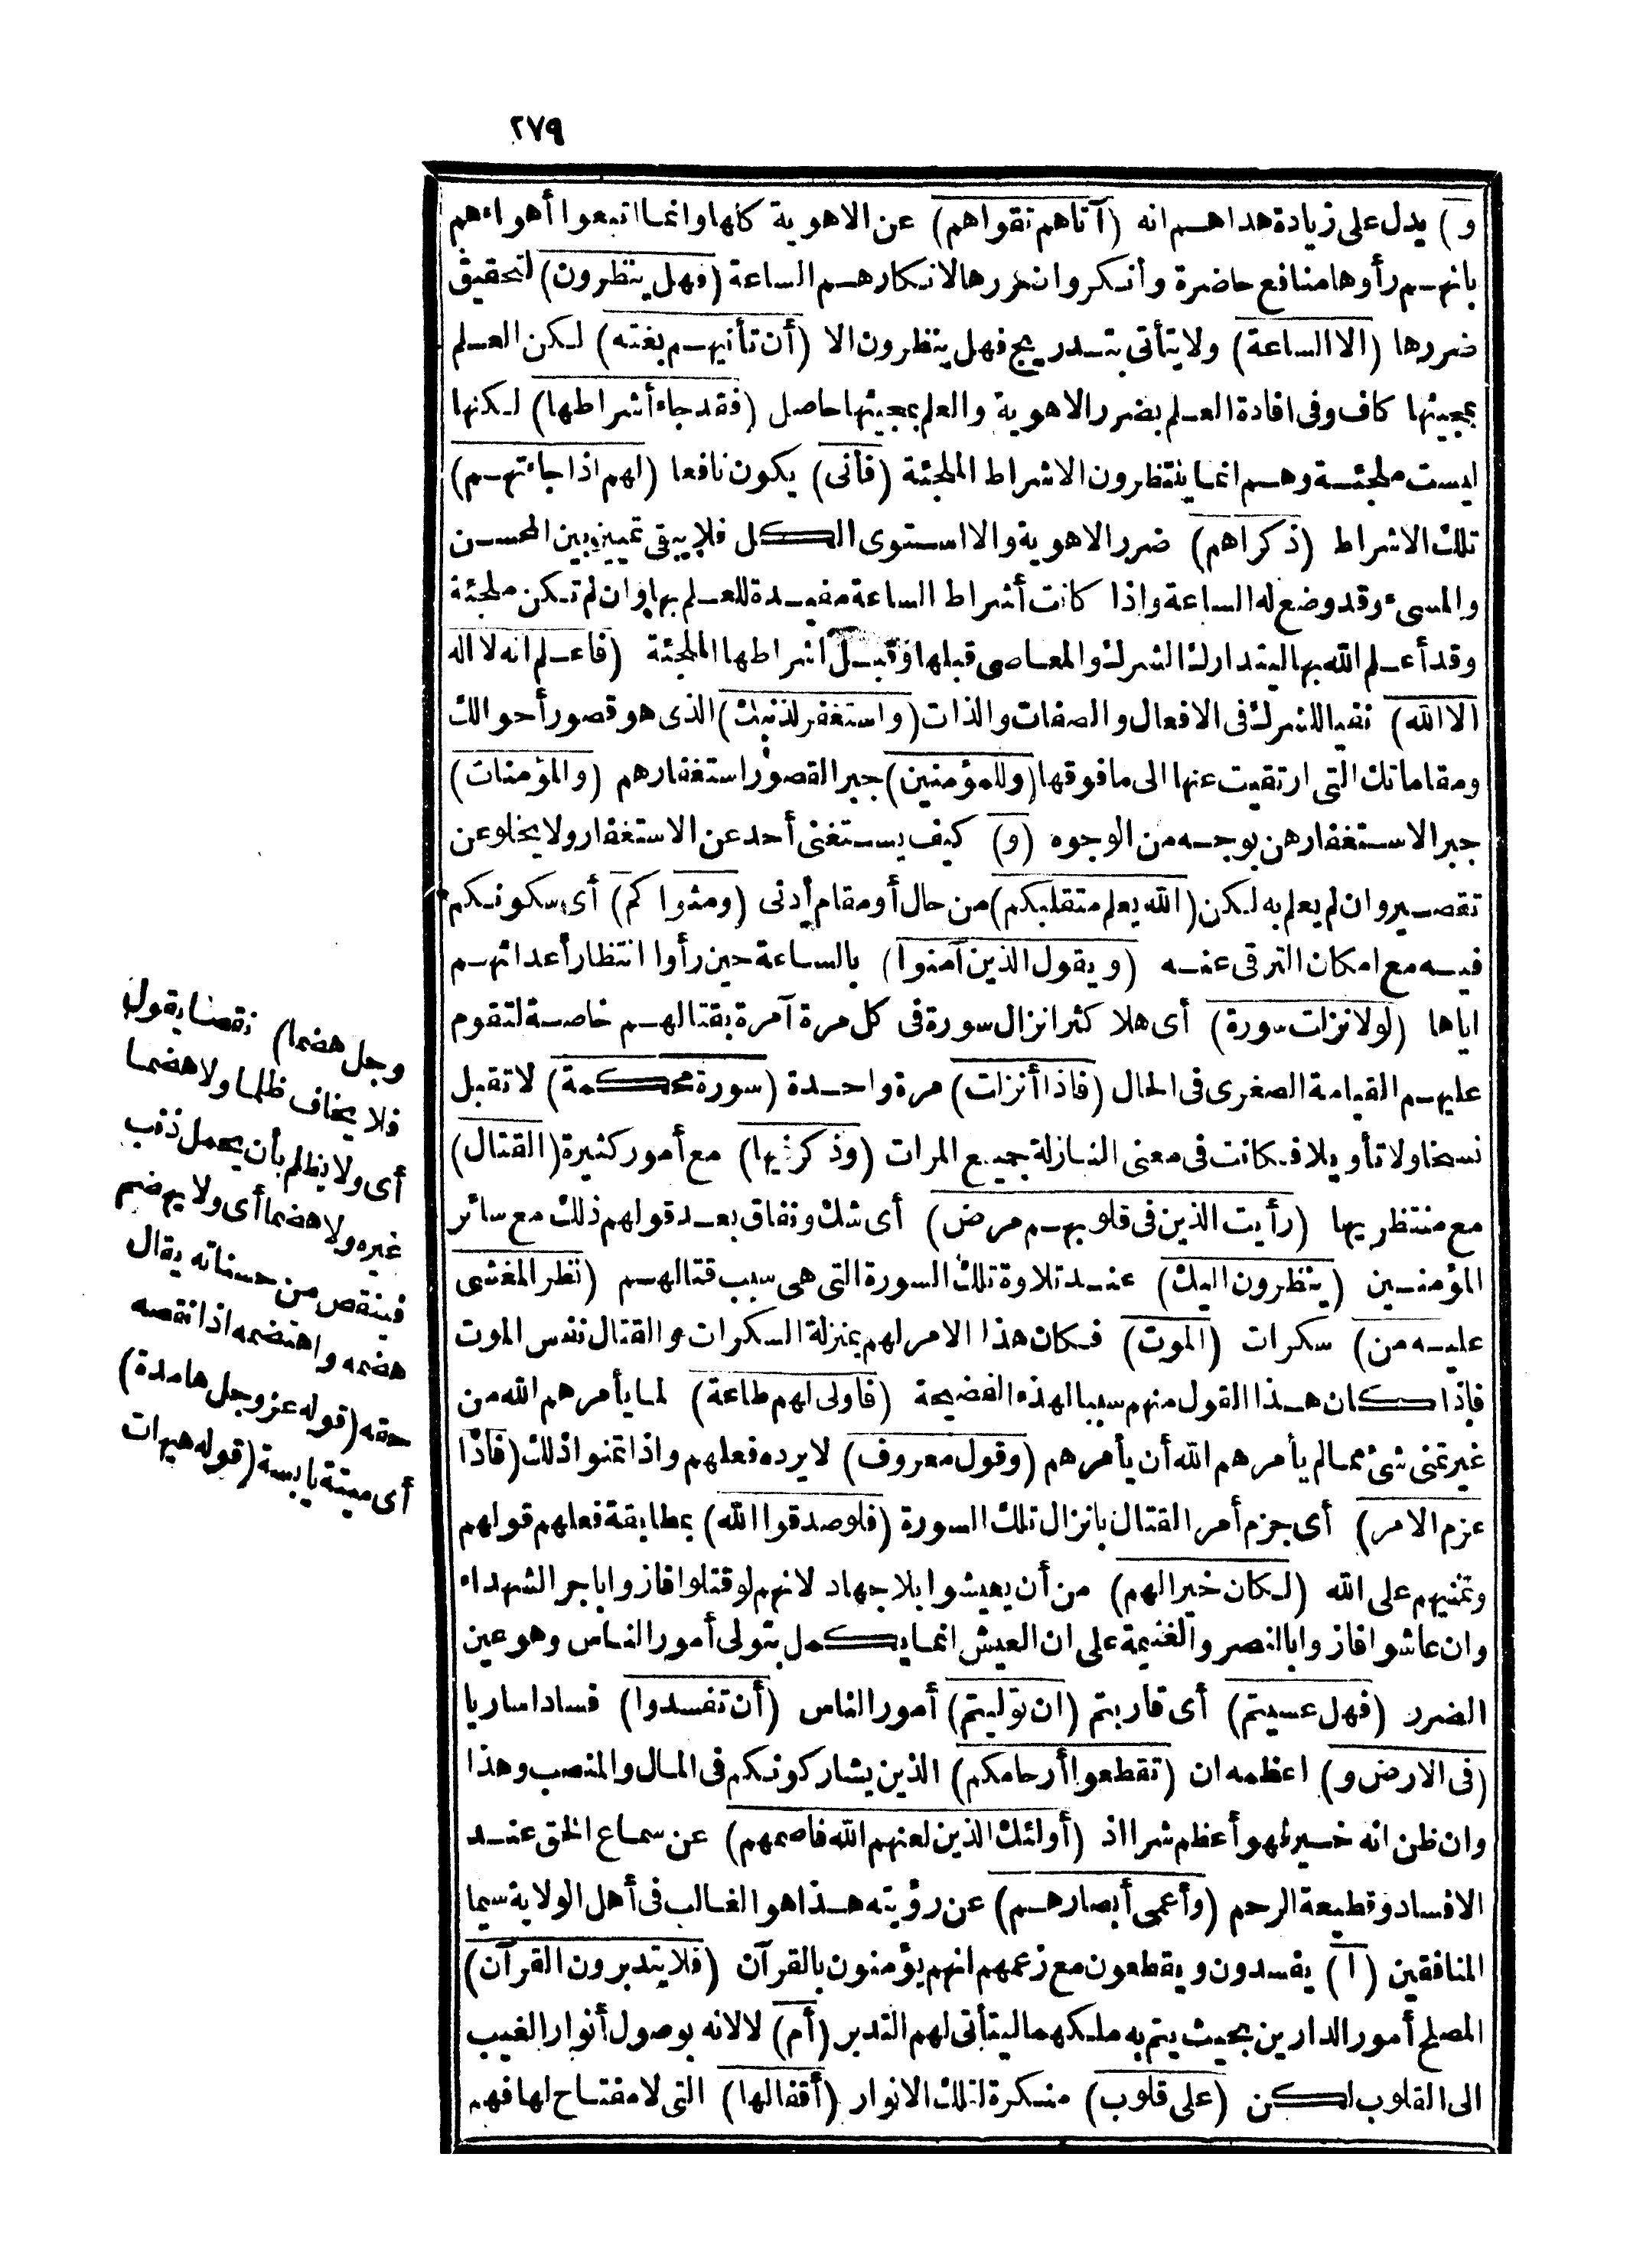 ٢٧٩
و) يدل على زيادة هداهم انه (آتاهم تقواهم) عن الاهوية كلها وانما اتبعوا أهواءهم
بانهم رأوها منافع حاضرة وأنكروا ضررها لانكارهم الساعة (فهل ينظرون) لتحقيق
ضررها (الا الساعة) ولا يتأتى بتدريج فهل ينظرون الا (أن تأتيهم بغتة) لكن العلم
بمجيئها كاف وفى افادة العلم بضرر الاهوية والعلم بمجيئها حاصل (فقد جاء أشراطها) لكنها
ليست ملجئة وهم انما ينتظرون الاشراط الملجئة (فأنى) يكون نافعا (لهم اذا جاءتهم)
تلك الاشراط (ذكراهم) ضرر الاهوية والا استوى الكل فلا يبقى تمييز بين المحسن
والمسىء وقد وضع له الساعة واذا كانت أشراط الساعة مفيدة للعلم بها وان لم تكن ملجئة
وقد أعلم الله بها ليتدارك الشرك والمعاصى قبلها وقبل اشراطها الملجئة (فاعلم انه لا اله
الا الله) نفيا للشرك فى الافعال والصفات والذات (واستغفر لذنبك) الذى هو قصور أحوالك
ومقاماتك التى ارتقيت عنها الى ما فوقها (وللمؤمنين) جبر القصور استغفارهم (والمؤمنات)
جبر الاستغفارهن بوجه من الوجوه (و) كيف يستغنى أحد عن الاستغفار ولا يخلو عن
تقصير وان لم يعلم به لكن (الله يعلم متقلبكم) من حال أو مقام أدنى (ومثواكم) أى سكونكم
فيه مع امكان الترقى عنه (ويقول الذين آمنوا) بالساعة حين رأوا انتظار أعدائهم
اياها (لولا نزلت سورة) أى هلا كثر انزال سورة فى كل مرة آمرة بقتالهم خاصة لتقوم
عليهم القيامة الصغرى فى الحال (فاذا أنزلت) مرة واحدة (سورة محكمة) لا تقبل
نسخا ولا تأويلا فكانت فى معنى النازلة جميع المرات (وذكر فيها) مع أمور كثيرة (القتال)
مع منتظريها (رأيت الذين فى قلوبهم مرض) أى شك ونفاق بعد قولهم ذلك مع سائر
المؤمنين (ينظرون اليك) عند تلاوة تلك السورة التى هى سبب قتالهم (نظر المغشى
عليه من) سكرات (الموت) فكان هذا الامر لهم بمنزلة السكرات والقتال نفس الموت
فاذا كان هذا القول منهم سببا لهذه الفضيحة (فاولى لهم طاعة) لما يأمرهم الله من
غير تمنى شئ مما لم يأمرهم الله أن يأمرهم (وقول معروف) لا يرده فعلهم واذا تمنوا ذلك (فاذا
عزم الامر) أى جزم أمر القتال بانزال تلك السورة (فلو صدقوا الله) بمطابقة فعلهم قولهم
وتمنيهم على الله (لكان خيرا لهم) من أن يعيشوا بلا جهاد لانهم لو قتلوا فازوا باجر الشهداء
وان عاشوا فازوا بالنصر والغنيمة على ان العيش انما يكمل بتولى أمور الناس وهو عين
الضرر (فهل عسيتم) أى قاربتم (ان توليتم) أمور الناس (أن تفسدوا) فسادا ساريا
(فى الارض و) اعظمه ان (تقطعوا أرحامكم) الذين يشاركونكم فى المال والمنصب وهذا
وان ظن انه خير فهو أعظم شرا اذ (أولئك الذين لعنهم الله فاصمهم) عن سماع الحق عند
الافساد وقطيعة الرحم (وأعمى أبصارهم) عن رؤيته هذا هو الغالب فى أهل الولاية سيما
المنافقين (ا) يفسدون ويقطعون مع زعمهم انهم يؤمنون بالقرآن (فلا يتدبرون القرآن)
المصلح أمور الدارين بحيث يتم به ملكهما ليتأتى لهم التدبر (أم) لا لانه بوصول أنوار الغيب
الى القلوب لكن (على قلوب) منكرة لتلك الانوار (أقفالها) التى لا مفتاح لها فهم
وجل هضما) نقصا يقول
فلا يخاف ظلما ولا هضما
أى ولا يظلم بأن يحمل ذنب
غيره ولا هضما أى ولا يهضم
فينقص من حسناته يقال
هضمه واهتضمه اذا نقصه
حقه (قوله عز وجل هامدة)
أى ميتة يابسة (قوله هيهات